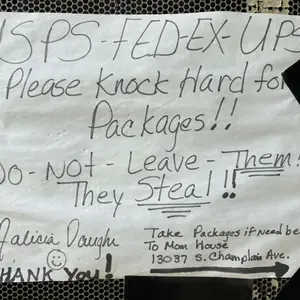 USPS-FED-EX-UPS
Please Knock Hard for
Packages!!
Do-NOT-Leave-Them!
They Steal!!
Take Packages if Need be
To Mom House
13037 S. Champlain Ave.
THANK You!